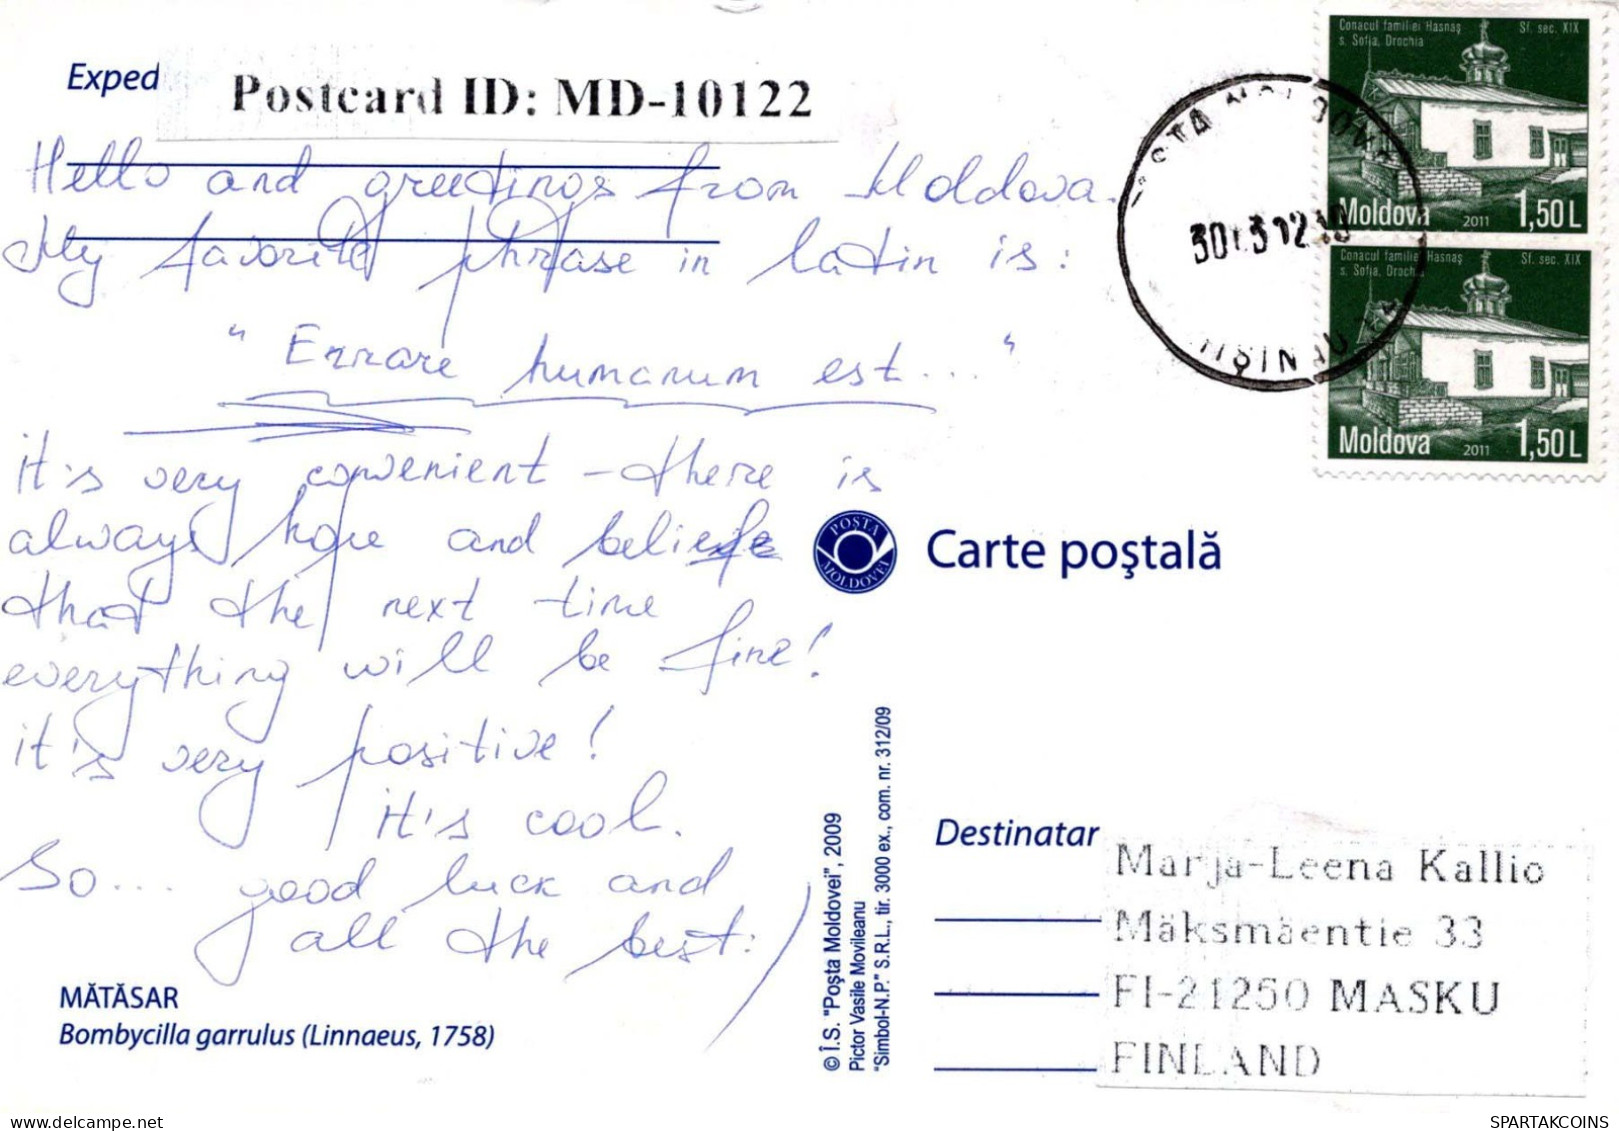 Exped
Postcard ID: MD-10122
Hello and greetings from Moldova.
My favorite phrase in latin is:
"Errare humanum est..."
it's very convenient - there is
always hope and beliefe
that the next time
everything will be fine!
it's very positive!
it's cool.
So... good luck and
all the best:)
MĂTĂSAR
Bombycilla garrulus (Linnaeus, 1758)
© Î.S. "Poşta Moldovei", 2009
Pictor Vasile Movileanu
"Simbol-N.P." S.R.L., tir. 3000 ex., com. nr. 312/09
Conacul familiei Hasnaş Sf. sec. XIX
s. Sofia, Drochia
Moldova 2011 1,50L
Conacul familiei Hasnaş Sf. sec. XIX
s. Sofia, Drochia
Moldova 2011 1,50L
POŞTA
MOLDOVEI
Carte poştală
Destinatar
Marja-Leena Kallio
Mäksmäentie 33
FI-21250 MASKU
FINLAND
SPARTAKCOINS